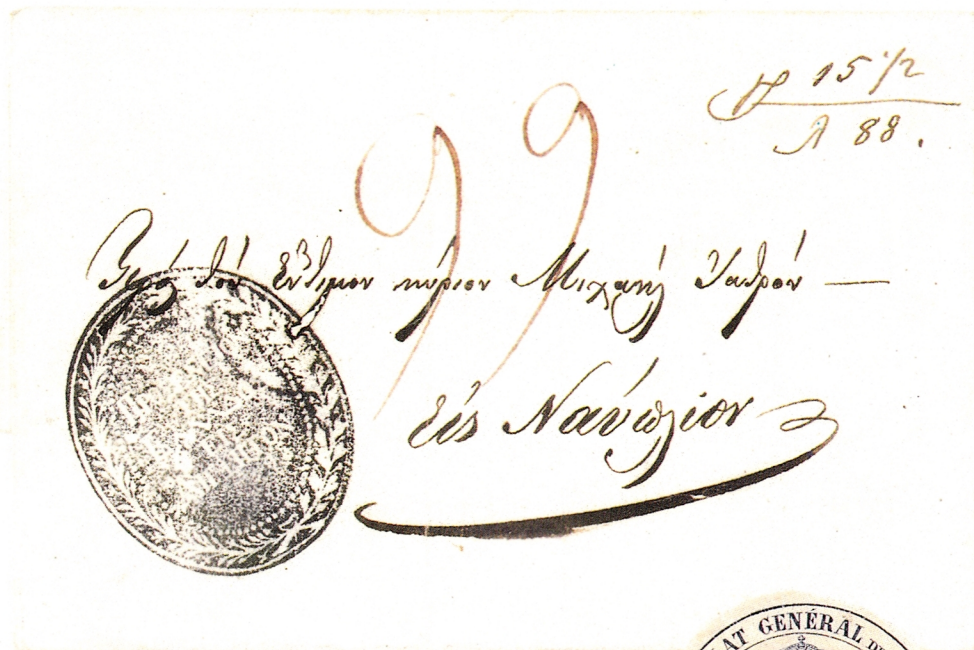 15 1/2
Λ 88.
99
Πρός τον Εντιμον κύριον Μιχαήλ Ιατρόν —
εις Ναύπλιον
GÉNÉRAL